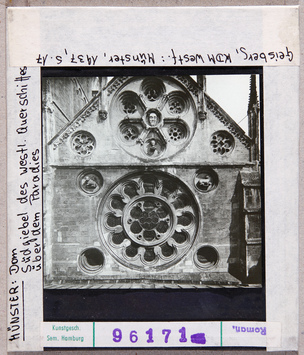 Geisberg, KDM Westf.: Münster, 1937, S. 17
MÜNSTER. Dom
Südgiebel des westl. Querschiffes
über dem Paradies
Kunstgesch.
Sem. Hamburg
96171
Roman.